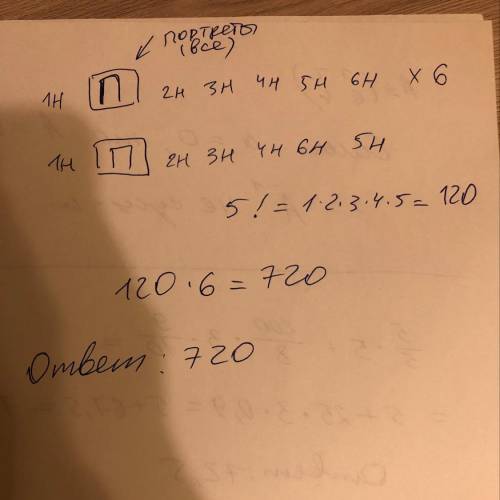 портреты
(все)
1н П 2н 3н 4н 5н 6н × 6
1н П 2н 3н 4н 6н 5н
5! = 1·2·3·4·5 = 120
120·6 = 720
Ответ: 720